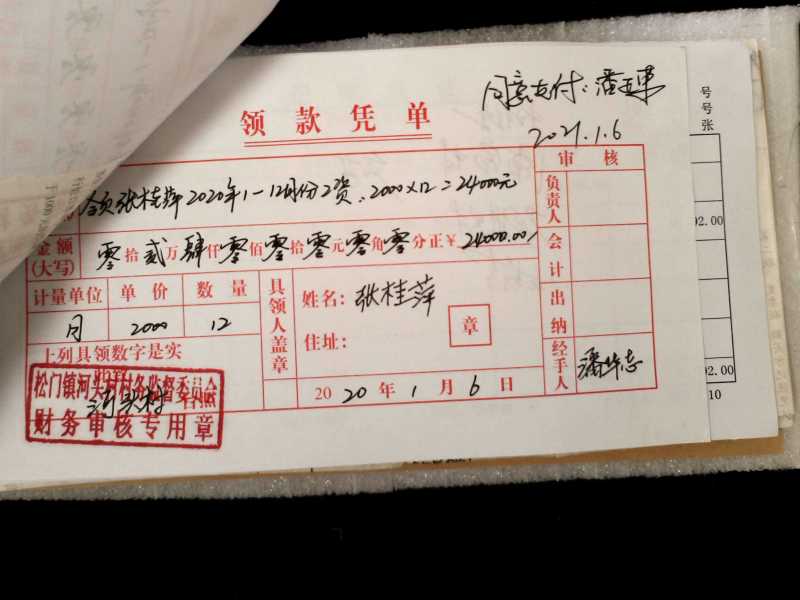 同意支付：潘玉東
2021.1.6
领款凭单
今领张桂萍2020年1—12月份工资：2000×12=24000元
金额(大写) 零拾贰万肆仟零佰零拾零元零角零分正¥24000.00
计量单位 单价 数量
月 2000 12
上列具领数字是实
此照
河头村
松门镇河头村村务监督委员会
财务审核专用章
具领人盖章
姓名：张桂萍
住址：
章
2020年1月6日
审核
负责人
会计
出纳
经手人 潘华志
号
号
张
02.00
02.00
10